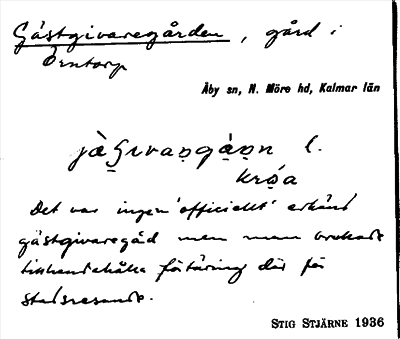 Gästgivaregården, gård i
Örntorp
Åby sn, N. Möre hd, Kalmar län
l.
Det var ingen 'officiellt' erkänd
gästgivaregåd men man brukade
tillhandahålla förtäring där för
stadsresande.
STIG STJÄRNE 1936